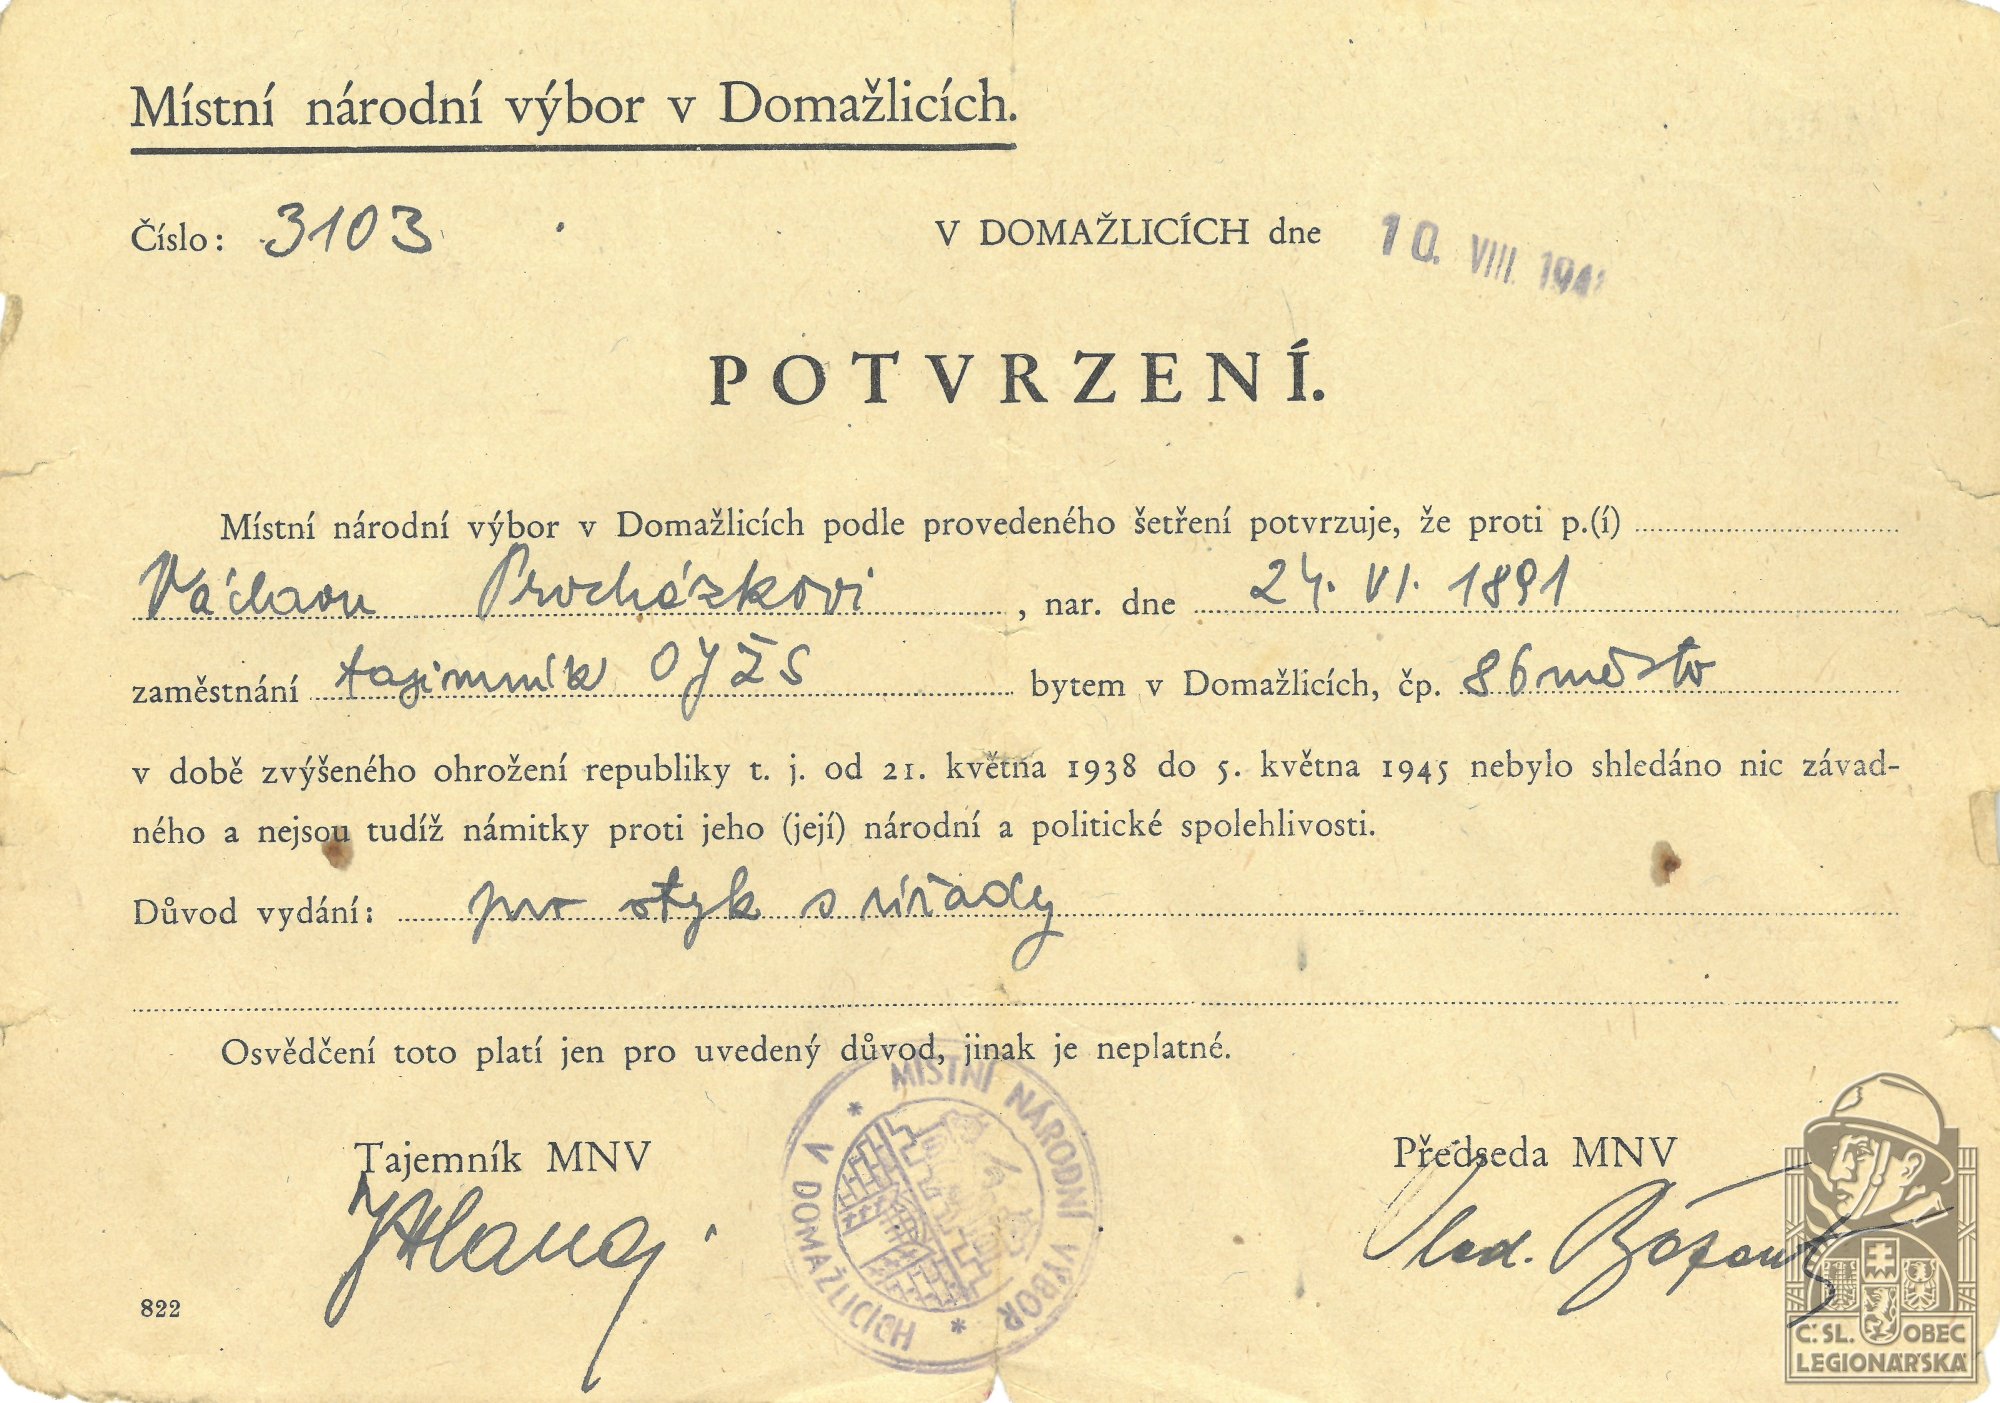 Místní národní výbor v Domažlicích.
Číslo: 3103
V DOMAŽLICÍCH dne 10. VIII.
POTVRZENÍ.
Místní národní výbor v Domažlicích podle provedeného šetření potvrzuje, že proti p.(í)
Václavu Procházkovi, nar. dne 24. VI. 1891
zaměstnání OJŽS bytem v Domažlicích, čp. 86 město
v době zvýšeného ohrožení republiky t. j. od 21. května 1938 do 5. května 1945 nebylo shledáno nic závad-
ného a nejsou tudíž námitky proti jeho (její) národní a politické spolehlivosti.
Důvod vydání: pro styk s úřady
Osvědčení toto platí jen pro uvedený důvod, jinak je neplatné.
Tajemník MNV
Předseda MNV
Vlad.
MÍSTNÍ NÁRODNÍ VÝBOR * V DOMAŽLICÍCH *
822
Č. SL. OBEC
LEGIONÁŘSKÁ